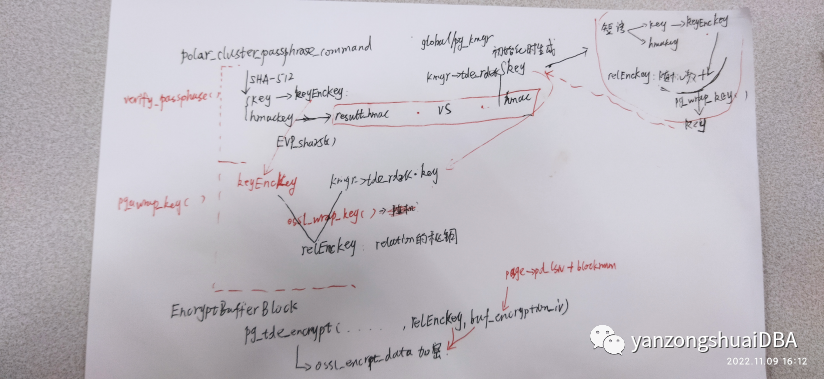 polar_cluster_passphrase_command
global/pg_kmgr
初始化时生成
SHA-512
verify_passphase()
key → keyEnckey
hmackey → result_hmac
VS
hmac
kmgr→tde_rdek
key
EVP_sha256()
密语
key → keyEnckey
hmackey
relEnckey:
pg_wrap_key()
key
keyEnckey
kmgr→tde_rdek.key
ossl_wrap_key()
relEnckey: relation的秘钥
page→pd_lsn + blocknum
EncryptBufferBlock
pg_tde_encrypt(......, relEnckey, buf_encryption_iv)
ossl_encrypt_data 加密
yanzongshuaiDBA
2022.11.09 16:12